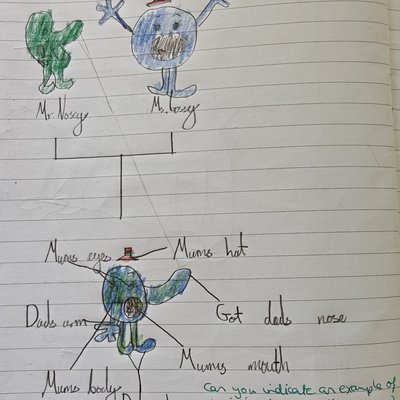 Mr. Nosey
Ms. Bossy
Mums eyes
Mums hat
Dads arm
Got dads nose
Mums mouth
Mums body
can you indicate an example of